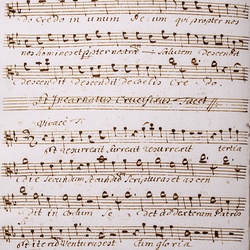 do Credo in unum Deum qui propter nos
nos homines et ppter nostra — Salutem Descendit
descendit descendit de Coelis Cre — do.
Et Incarnatus Crucifixus — Tacet
Vivace
Et resurrexit, surrexit resurrexit tertia
die secundum Scripturas et ascen
dit in Coelum Se — det ad dexteram Patris
et iterum Venturus est Cum gloria